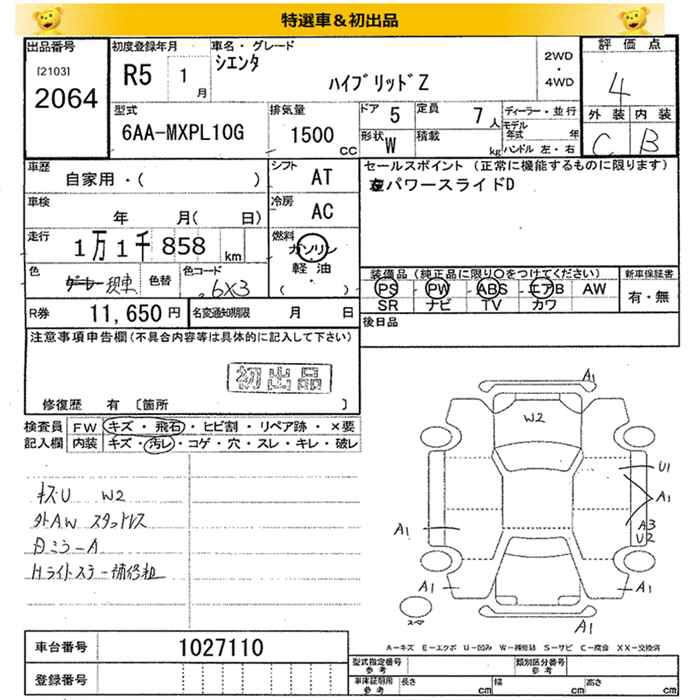 特選車＆初出品
出品番号
[2103]
2064
初度登録年月
R5 1月
車名・グレード
シエンタ
ハイブリッドZ
2WD
・
4WD
評価点
4
外装 内装
C B
型式
6AA-MXPL10G
排気量
1500 CC
ドア 5
定員 7人
形状 W
積載 kg
ディーラー・並行
モデル年式 年
ハンドル 左・右
車歴
自家用・( )
シフト AT
車検
年 月( 日)
冷房 AC
走行
1万1千858 km
燃料
ガソリン
軽油
・
( )
色
グレー 現車
色替
色コード
6X3
セールスポイント（正常に機能するものに限ります）
左パワースライドD
装備品（純正品に限り○をつけてください）
PS PW ABS エアB AW
SR ナビ TV カワ
新車保証書
有・無
R券 11,650円
名変通知期限 月 日
後日品
注意事項申告欄（不具合内容等は具体的に記入して下さい）
初出品
修復歴 有 〔箇所 〕
検査員記入欄
FW キズ・飛石・ヒビ割・リペア跡・×要
内装 キズ・汚レ・コゲ・穴・スレ・キレ・破レ
キズU W2
外AW スタッドレス
Hライトステー補修粗
A1
W2
U1
A1
A3
U2
A1
A1
A1
A1
スペア
A-キズ E-エクボ U-凹み W-補修跡 S-サビ C-腐食 XX-交換済
車台番号 1027110
登録番号
型式指定番号 参考
類別区分番号 参考
車庫証明用 参考
長さ cm 幅 cm 高さ cm